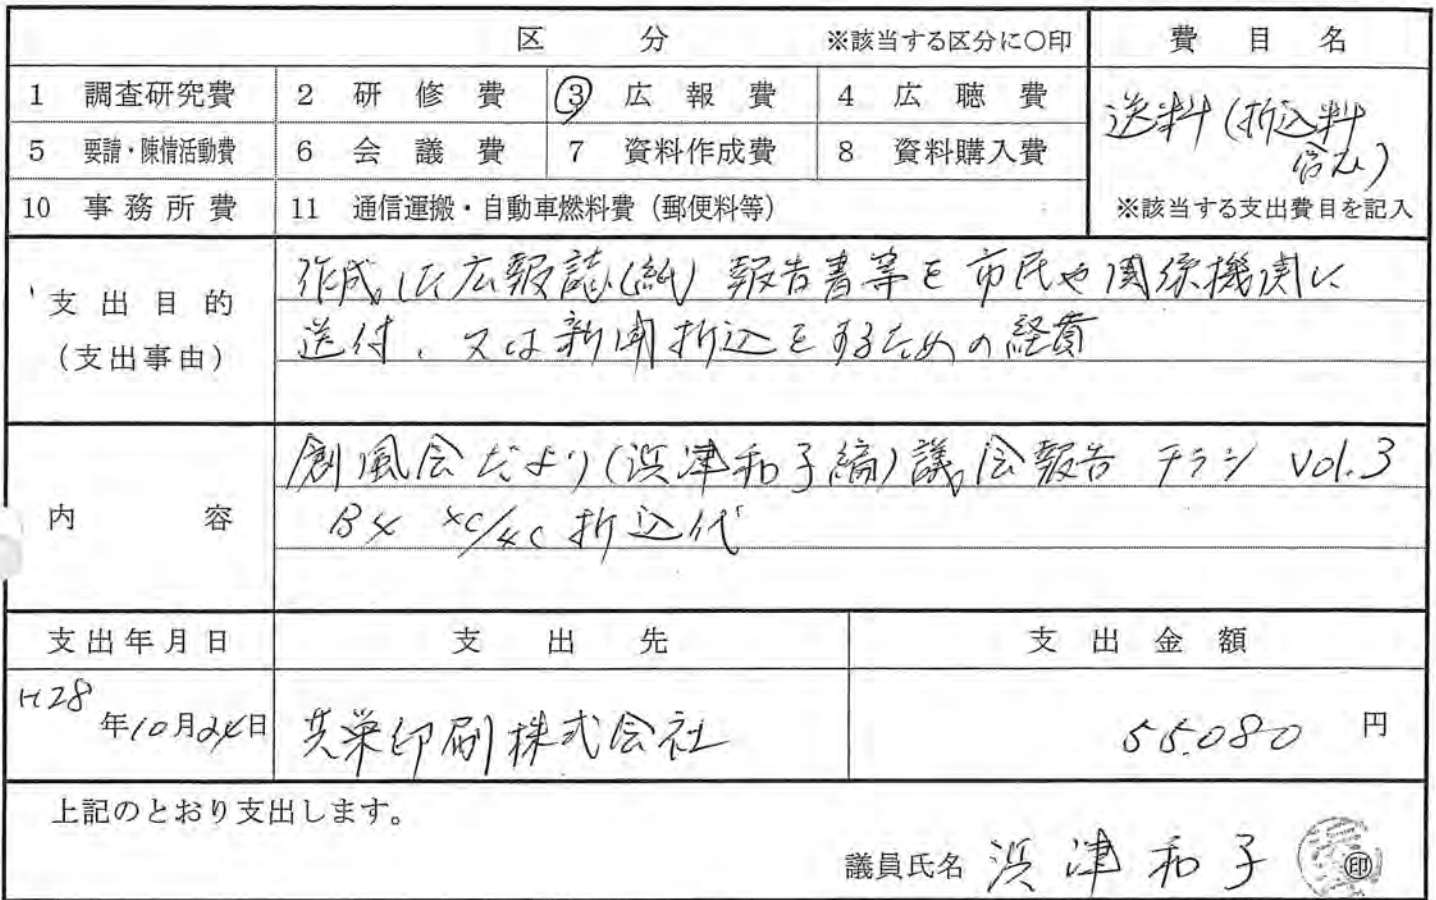 区 分 ※該当する区分に○印 費目名
1 調査研究費 2 研修費 ③ 広報費 4 広聴費
送料(折込料
5 要請・陳情活動費 6 会議費 7 資料作成費 8 資料購入費
含む)
10 事務所費 11 通信運搬・自動車燃料費(郵便料等) ※該当する支出費目を記入
支出目的
(支出事由)
作成した広報誌(紙)報告書等を市民や関係機関に
送付、又は新聞折込をするための経費
内容
創風会だより(浜津和子編)議会報告 チラシ Vol.3
B4 4C/4C 折込代
支出年月日 支出先 支出金額
H28年10月24日 共栄印刷株式会社 55,080円
上記のとおり支出します。
議員氏名 浜津和子 印